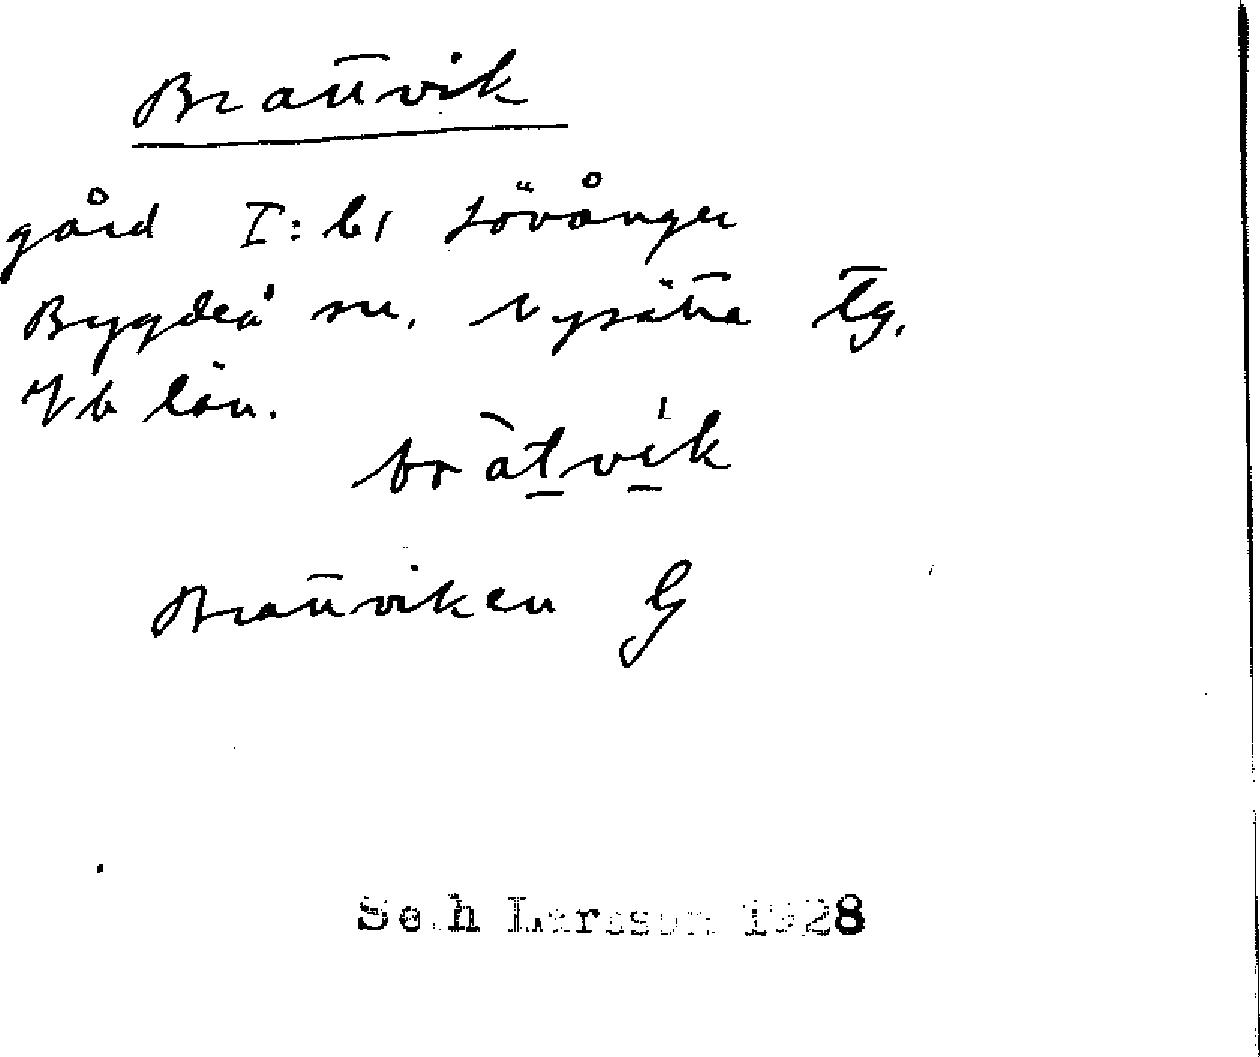 Brattvik
gård I:61 Lövånger
Bygdeå sn. Nysätra tg.
Vb län.
bràtvik
Brattviken G
Seth Larsson 1928